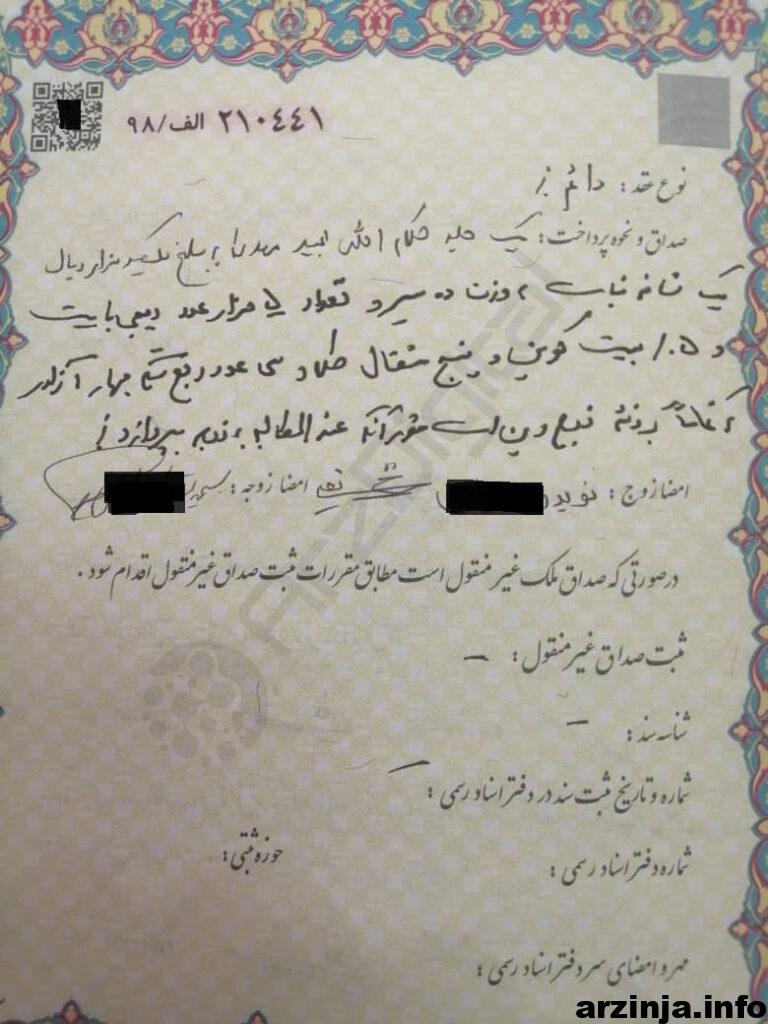 ۲۱۰۴۴۱ الف/۹۸
نوع عقد: دائم
صداق و نحوه پرداخت: یک جلد کلام الله مجید مهدیه به مبلغ یکصد هزار ریال
یک شاخه نبات به وزن ده سیر و تعداد ۵ هزار عدد دیجی بایت
و ۱.۵ بیت کوین و پنج مثقال طلا و سی عدد ربع سکه بهار آزادی
که تماماً بر ذمه زوج دین است عندالمطالبه به زوجه بپردازد
امضا زوج: نوید امضا زوجه:
ARZDIGITAL
درصورتی که صداق ملک غیر منقول است مطابق مقررات ثبت صداق غیر منقول اقدام شود.
ثبت صداق غیر منقول: –
شناسه سند: –
شماره و تاریخ ثبت سند در دفتر اسناد رسمی: –
شماره دفتر اسناد رسمی: حوزه ثبتی:
مهر و امضای سردفتر اسناد رسمی:
arzinja.info